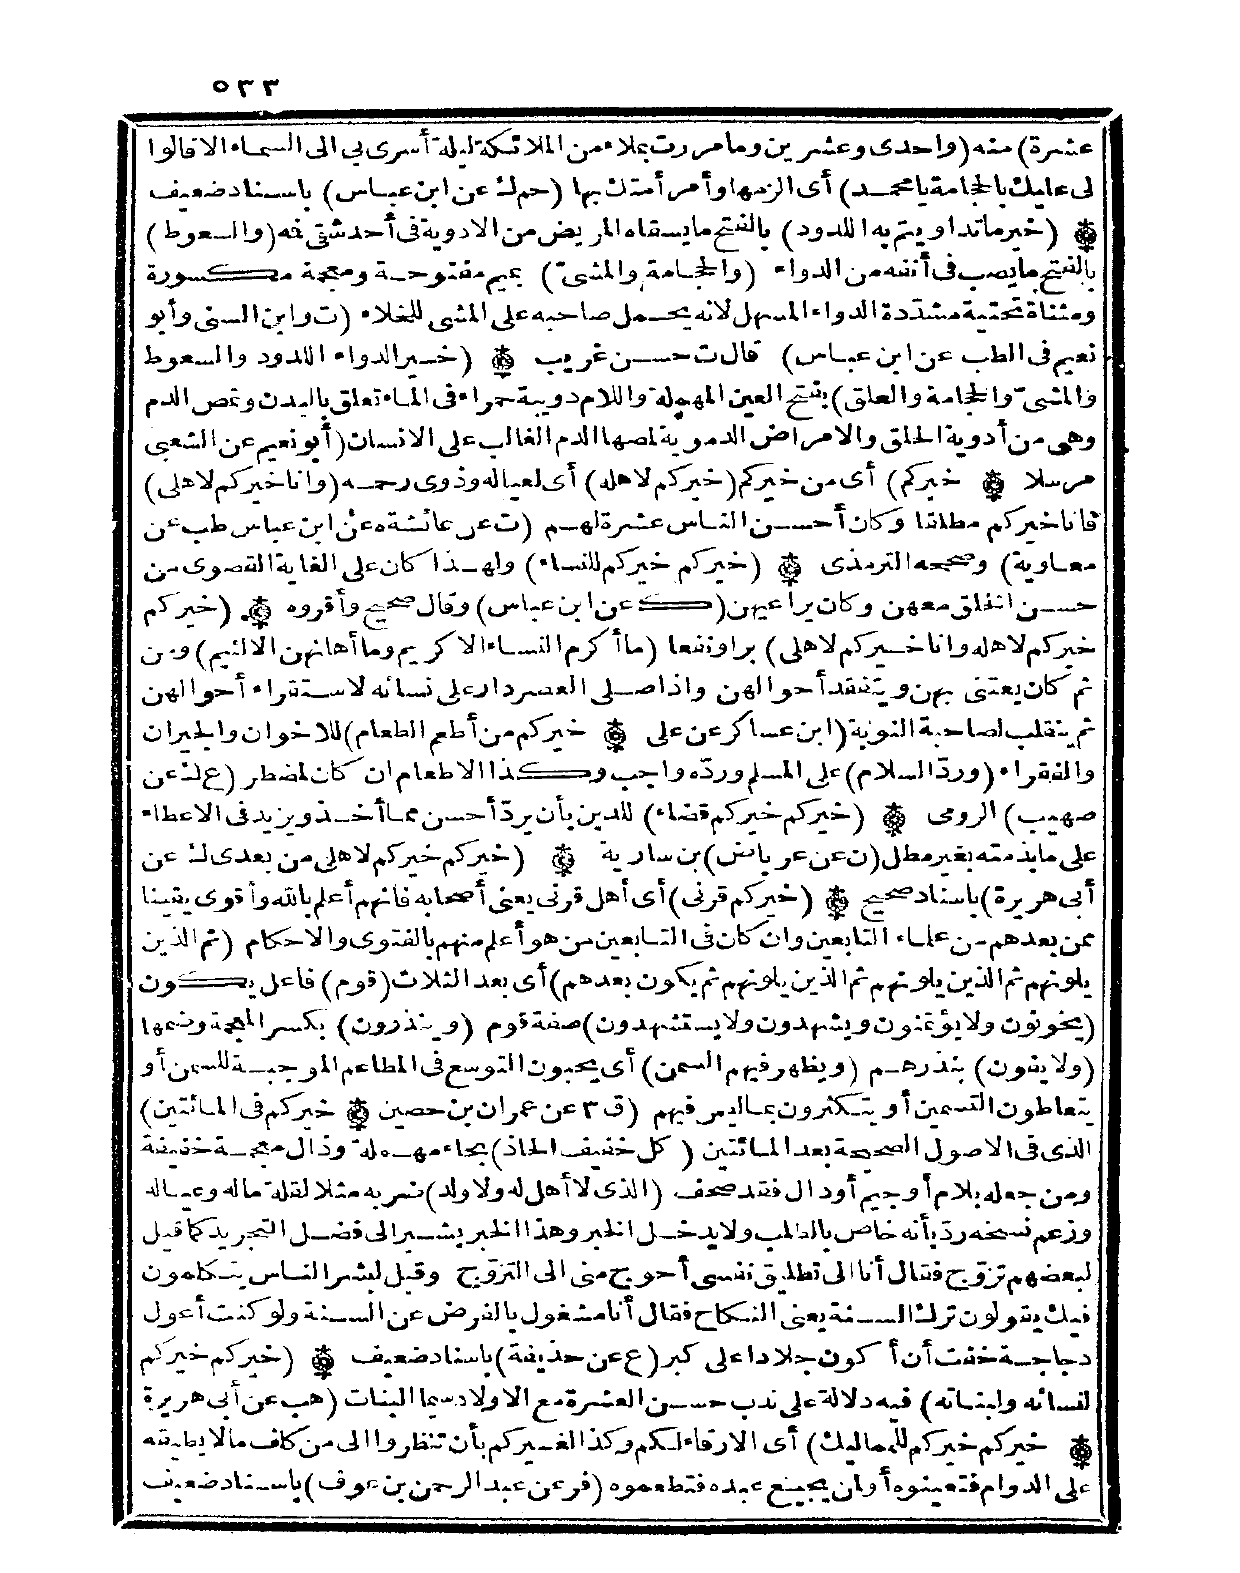 ٥٣٣
عشرة) منه (واحدى وعشرين وما مررت بملاء من الملائكة ليلة أسرى بى الى السماء الا قالوا
لى عليك بالحجامة يا محمد) أى الزمها وأمر أمتك بها (حم ك عن ابن عباس) باسناد ضعيف
(خير ما تداويتم به اللدود) بالفتح ما يسقاه المريض من الادوية فى أحد شقى فمه (والسعوط)
بالفتح ما يصب فى أنفه من الدواء (والحجامة والمشىّ) بميم مفتوحة ومعجمة مكسورة
ومثناة تحتية مشدّدة الدواء المسهل لانه يحمل صاحبه على المشى للخلاء (ت وابن السنى وأبو
نعيم فى الطب عن ابن عباس) قال ت حسن غريب (خير الدواء اللدود والسعوط
والمشىّ والحجامة والعلق) بفتح العين المهملة واللام دويبة حمراء فى الماء تعلق بالبدن وتمص الدم
وهى من أدوية الحلق والامراض الدموية لمصها الدم الغالب على الانسان (أبو نعيم عن الشعبى
مرسلا خيركم) أى من خيركم (خيركم لاهله) أى لعياله وذوى رحمه (وانا خيركم لاهلى)
فانا خيركم مطلقا وكان أحسن الناس عشرة لهم (ت عن عائشة ه عن ابن عباس طب عن
معاوية) وصححه الترمذى (خيركم خيركم للنساء) ولهذا كان على الغاية القصوى من
حسن الخلق معهن وكان يراعيهن (ك عن ابن عباس) وقال صحيح وأقروه (خيركم
خيركم لاهله وانا خيركم لاهلى) برا ونفعا (ما أكرم النساء الا كريم وما أهانهن الا لئيم) ومن
ثم كان يعتنى بهن ويتفقد أحوالهن واذا صلى العصر دار على نسائه لاستقراء أحوالهن
ثم ينقلب لصاحبة النوبة (ابن عساكر عن على خيركم من أطعم الطعام) للاخوان والجيران
والفقراء (وردّ السلام) على المسلم وردّه واجب وكذا الاطعام ان كان لمضطر (ع ك عن
صهيب) الرومى (خيركم خيركم قضاء) للدين بأن يردّ أحسن مما أخذ ويزيد فى الاعطاء
على ما بذمته بغير مطل (ن عن عرباض) بن سارية (خيركم خيركم لاهلى من بعدى ك عن
أبى هريرة) باسناد صحيح (خيركم قرنى) أى أهل قرنى يعنى أصحابه فانهم أعلم بالله وأقوى يقينا
ممن بعدهم من علماء التابعين وان كان فى التابعين من هو أعلم منهم بالفتوى والاحكام (ثم الذين
يلونهم ثم الذين يلونهم ثم الذين يلونهم ثم يكون بعدهم) أى بعد الثلاث (قوم) فاعل يكون
(يخونون ولا يؤتمنون ويشهدون ولا يستشهدون) صفة قوم (وينذرون) بكسر المعجمة وضمها
(ولا يفون) بنذرهم (ويظهر فيهم السمن) أى يحبون التوسع فى المطاعم الموجبة للسمن أو
يتعاطون التسمين أو يتكثرون بما ليس فيهم (ق ٣ عن عمران بن حصين خيركم فى المائتين)
الذى فى الاصول الصحيحة بعد المائتين (كل خفيف الحاذ) بحاء مهملة وذال معجمة خفيفة
ومن جعله بلام أو جيم أو دال فقد صحف (الذى لا أهل له ولا ولد) ضربه مثلا لقلة ماله وعياله
وزعم نسخه ردّ بأنه خاص بالطلب ولا يدخل الخبر وهذا الخبر يشير الى فضل التجريد كما قيل
لبعضهم تزوّج فقال أنا الى تطليق نفسى أحوج منى الى التزوّج وقيل لبشر الناس يتكلمون
فيك يقولون ترك السنة يعنى النكاح فقال أنا مشغول بالفرض عن السنة ولو كنت أعول
دجاجة خفت أن أكون جلادا على كبر (ع عن حذيفة) باسناد ضعيف (خيركم خيركم
لنسائه ولبناته) فيه دلالة على ندب حسن العشرة مع الاولاد سيما البنات (هب عن أبى هريرة
خيركم خيركم للمماليك) أى الارقاء لكم وكذا لغيركم بأن تنظروا الى من كلف ما لا يطيقه
على الدوام فتعينوه أو ان يجيع عبده فتطعموه (فر عن عبد الرحمن بن عوف) باسناد ضعيف